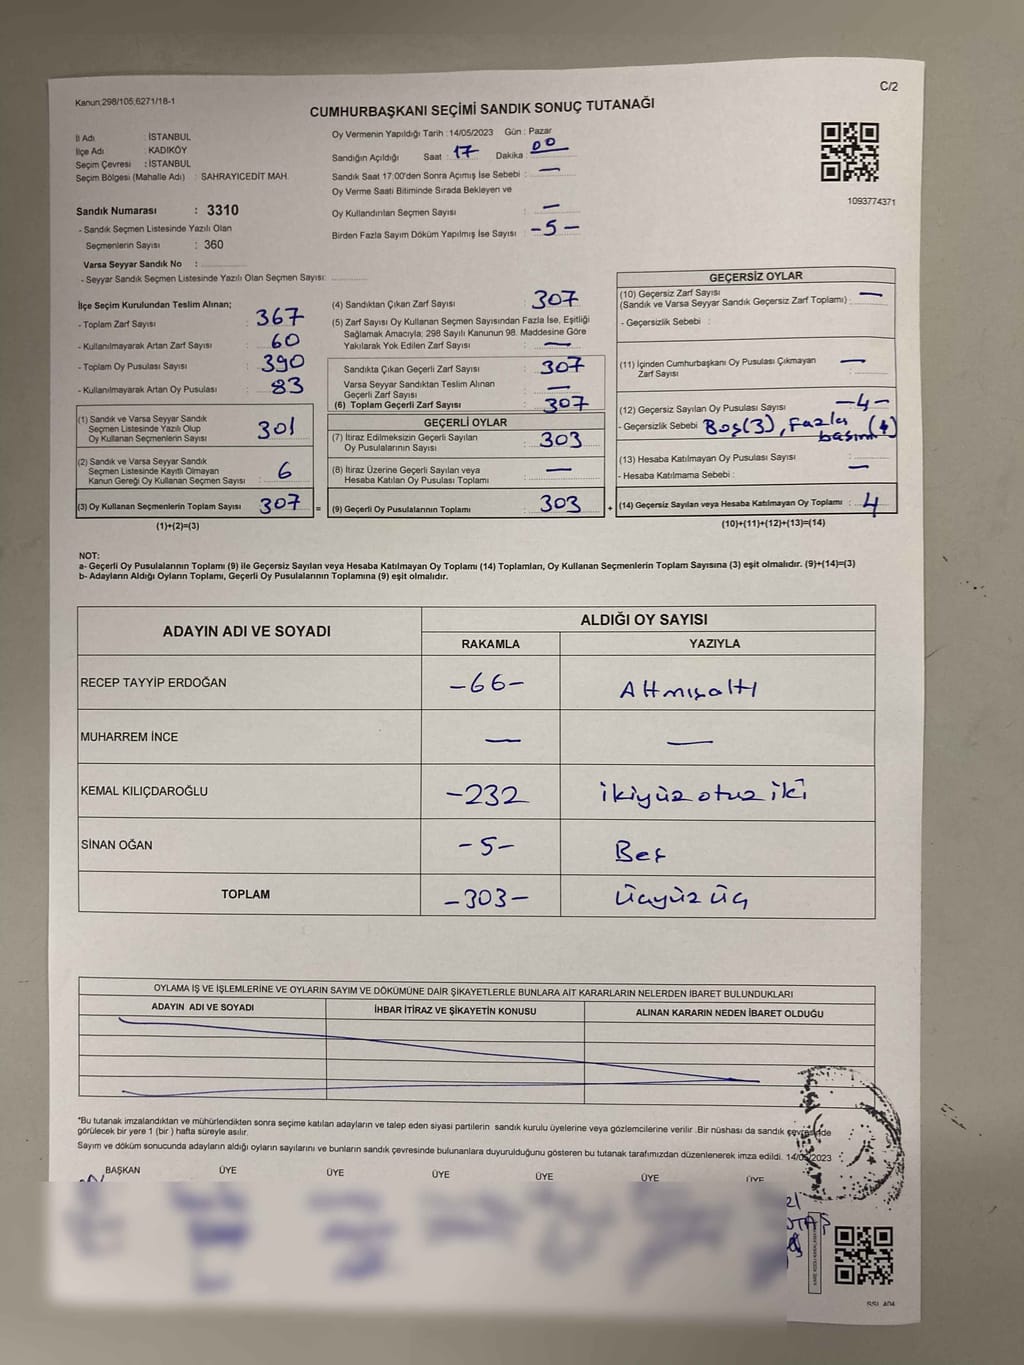 Kanun,298/105,6271/18-1
C/2
CUMHURBAŞKANI SEÇİMİ SANDIK SONUÇ TUTANAĞI
İl Adı : İSTANBUL
İlçe Adı : KADIKÖY
Seçim Çevresi : İSTANBUL
Seçim Bölgesi (Mahalle Adı) : SAHRAYICEDİT MAH.
Sandık Numarası : 3310
- Sandık Seçmen Listesinde Yazılı Olan
Seçmenlerin Sayısı : 360
Varsa Seyyar Sandık No :
- Seyyar Sandık Seçmen Listesinde Yazılı Olan Seçmen Sayısı:
Oy Vermenin Yapıldığı Tarih :14/05/2023 Gün : Pazar
Sandığın Açıldığı Saat : 17 Dakika : 00
Sandık Saat 17:00'den Sonra Açımış İse Sebebi : —
Oy Verme Saati Bitiminde Sırada Bekleyen ve
Oy Kullandırılan Seçmen Sayısı : —
Birden Fazla Sayım Döküm Yapılmış İse Sayısı : -5-
1093774371
İlçe Seçim Kurulundan Teslim Alınan;
- Toplam Zarf Sayısı : 367
- Kullanılmayarak Artan Zarf Sayısı : 60
- Toplam Oy Pusulası Sayısı : 390
- Kullanılmayarak Artan Oy Pusulası : 83
(1) Sandık ve Varsa Seyyar Sandık
Seçmen Listesinde Yazılı Olup
Oy Kullanan Seçmenlerin Sayısı : 301
(2) Sandık ve Varsa Seyyar Sandık
Seçmen Listesinde Kayıtlı Olmayan
Kanun Gereği Oy Kullanan Seçmen Sayısı : 6
(3) Oy Kullanan Seçmenlerin Toplam Sayısı : 307 =
(1)+(2)=(3)
(4) Sandıktan Çıkan Zarf Sayısı : 307
(5) Zarf Sayısı Oy Kullanan Seçmen Sayısından Fazla İse, Eşitliği
Sağlamak Amacıyla; 298 Sayılı Kanunun 98. Maddesine Göre
Yakılarak Yok Edilen Zarf Sayısı : —
Sandıkta Çıkan Geçerli Zarf Sayısı : 307
Varsa Seyyar Sandıktan Teslim Alınan
Geçerli Zarf Sayısı : —
(6) Toplam Geçerli Zarf Sayısı : 307
GEÇERLİ OYLAR
(7) İtiraz Edilmeksizin Geçerli Sayılan
Oy Pusulalarının Sayısı : 303
(8) İtiraz Üzerine Geçerli Sayılan veya
Hesaba Katılan Oy Pusulası Toplamı : —
(9) Geçerli Oy Pusulalarının Toplamı : 303 +
GEÇERSİZ OYLAR
(10) Geçersiz Zarf Sayısı
(Sandık ve Varsa Seyyar Sandık Geçersiz Zarf Toplamı) : —
- Geçersizlik Sebebi :
(11) İçinden Cumhurbaşkanı Oy Pusulası Çıkmayan
Zarf Sayısı : —
(12) Geçersiz Sayılan Oy Pusulası Sayısı : -4-
- Geçersizlik Sebebi Boş(3), Fazla
(13) Hesaba Katılmayan Oy Pusulası Sayısı :
- Hesaba Katılmama Sebebi : —
(14) Geçersiz Sayılan veya Hesaba Katılmayan Oy Toplamı : 4
(10)+(11)+(12)+(13)=(14)
NOT:
a- Geçerli Oy Pusulalarının Toplamı (9) ile Geçersiz Sayılan veya Hesaba Katılmayan Oy Toplamı (14) Toplamları, Oy Kullanan Seçmenlerin Toplam Sayısına (3) eşit olmalıdır. (9)+(14)=(3)
b- Adayların Aldığı Oyların Toplamı, Geçerli Oy Pusulalarının Toplamına (9) eşit olmalıdır.
ADAYIN ADI VE SOYADI ALDIĞI OY SAYISI
RAKAMLA YAZIYLA
RECEP TAYYİP ERDOĞAN -66- Altmışaltı
MUHARREM İNCE — —
KEMAL KILIÇDAROĞLU -232 ikiyüz otuz iki
SİNAN OĞAN -5- Beş
TOPLAM -303- Üçyüz üç
OYLAMA İŞ VE İŞLEMLERİNE VE OYLARIN SAYIM VE DÖKÜMÜNE DAİR ŞİKAYETLERLE BUNLARA AİT KARARLARIN NELERDEN İBARET BULUNDUKLARI
ADAYIN ADI VE SOYADI İHBAR İTİRAZ VE ŞİKAYETİN KONUSU ALINAN KARARIN NEDEN İBARET OLDUĞU
*Bu tutanak imzalandıktan ve mühürlendikten sonra seçime katılan adayların ve talep eden siyasi partilerin sandık kurulu üyelerine veya gözlemcilerine verilir .Bir nüshası da sandık çevresinde
görülecek bir yere 1 (bir ) hafta süreyle asılır.
Sayım ve döküm sonucunda adayların aldığı oyların sayılarını ve bunların sandık çevresinde bulunanlara duyurulduğunu gösteren bu tutanak tarafımızdan düzenlenerek imza edildi. 14/05/2023
BAŞKAN ÜYE ÜYE ÜYE ÜYE ÜYE ÜYE